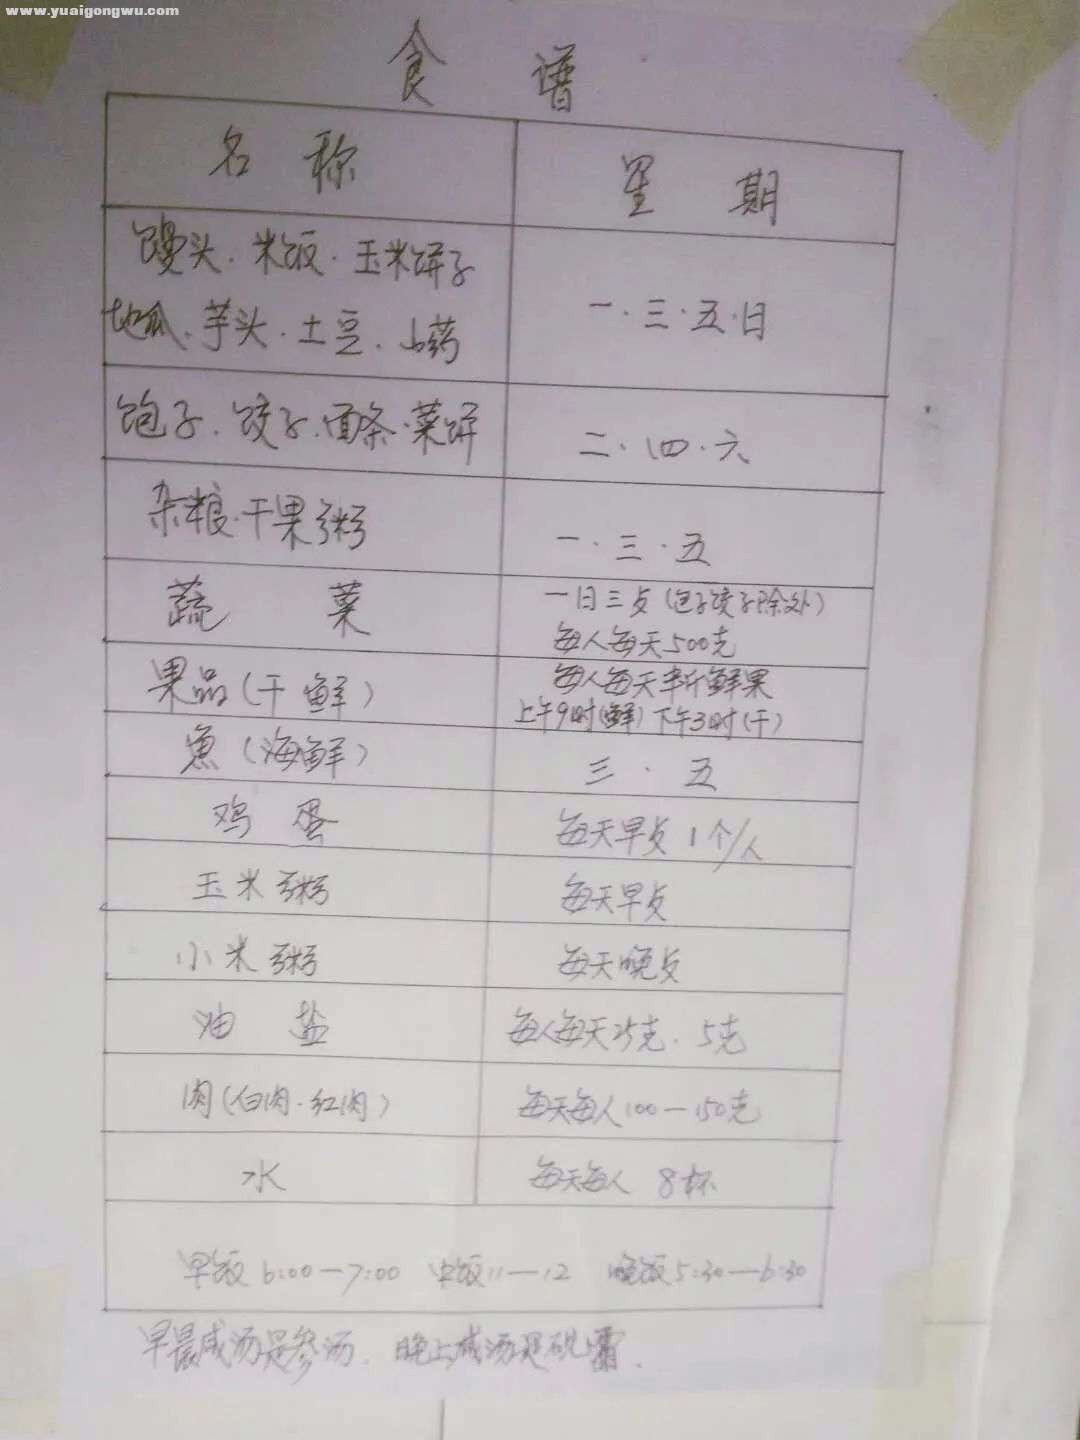 www.yuaigongwu.com
食谱
名称 星期
馒头·米饭·玉米饼子
地瓜·芋头·土豆·山药
一·三·五·日
包子·饺子·面条·菜饼 二·四·六
杂粮·干果粥 一·三·五
蔬菜
一日三歺(包子饺子除外)
每人每天500克
果品(干鲜)
每人每天半斤鲜果
上午9时(鲜)下午3时(干)
鱼(海鲜) 三·五
鸡蛋 每天早歺1个/人
玉米粥 每天早歺
小米粥 每天晚歺
油盐 每人每天25克·5克
肉(白肉·红肉) 每天每人100—150克
水 每天每人 8杯
早饭6:00—7:00 中饭11—12 晚饭5:30—6:30
早晨咸汤是参汤·晚上咸汤是